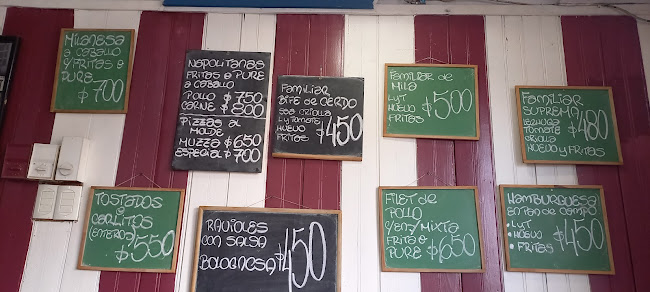 Milanesa
a caballo
y/fritas o
pure
$700
Napolitanas
fritas o pure
a caballo
Pollo $750
Carne $800
Pizzas al
molde
Muzza $650
Especial $700
Familiar
Bife de cerdo
Criolla
L y Tomate
Huevo
Fritas
$450
Familiar de
Mila
LyT
Huevo
Fritas
$500
Familiar
Suprema
Lechuga
Tomate
Criolla
Huevo y Fritas
$480
Tostados
o
Carlitos
(enteros)
$550
Ravioles
con salsa
Bolognesa
$450
Filet de
Pollo
c/ens/mixta
Frita o
Pure
$650
Hamburguesa
en pan de campo
• LyT
• Huevo
• Fritas
$450